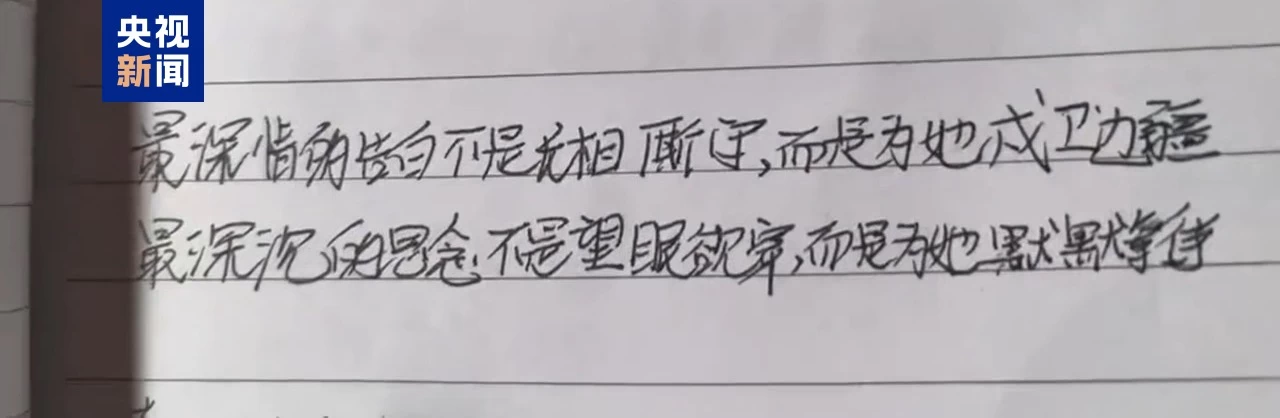 央视
新闻
最深情的告白不是无相厮守,而是为她戍卫边疆
最深沉的思念不是望眼欲穿,而是为她默默等待